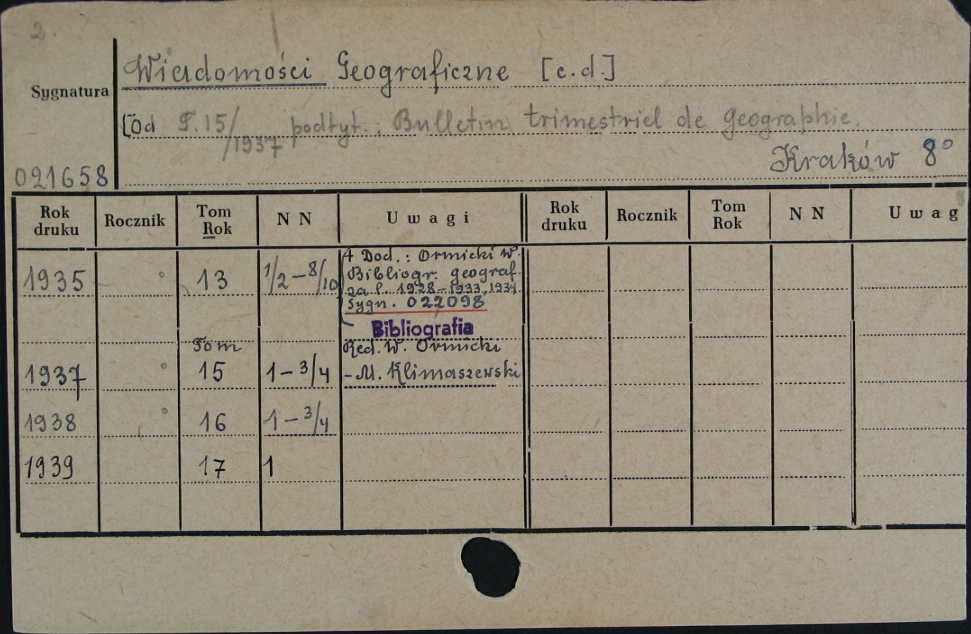 2.
Wiadomości Geograficzne [c.d.]
Sygnatura
[Od T. 15/1937 podtyt.: Bulletin trimestriel de Geographie.
Kraków 8°
021658
Rok druku Rocznik Tom Rok N N Uwagi Rok druku Rocznik Tom Rok N N Uwag
1935 13 1/2 – 8/10 4 Dod.: Ormicki W.
Bibliogr. geograf.
za l. 1928-1933, 1934
Sygn. 022098
Bibliografia
Tom Red. W. Ormicki
1937 15 1 – 3/4 - M. Klimaszewski
1938 16 1 – 3/4
1939 17 1